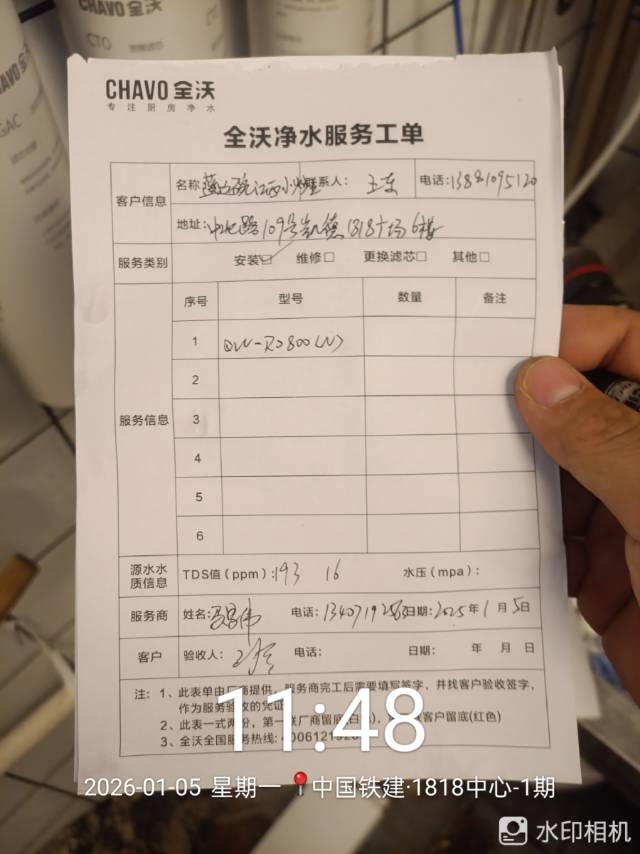 CHAVO全沃
CTO
GAC
CHAVO 全沃
专注厨房净水
全沃净水服务工单
客户信息
名称 江西小炒 联系人： 王东 电话：
地址：中北路109号凯德1818广场6楼
服务类别 安装☑ 维修□ 更换滤芯□ 其他□
服务信息
序号 型号 数量 备注
1 DW-RO800(N)
2
3
4
5
6
源水水质信息 TDS值（ppm）:193 16 水压（mpa）：
服务商 姓名: 电话： 日期:2025年1月5日
客户 验收人： 电话： 日期： 年 月 日
注：1、此表单由厂商提供，服务商完工后需要填写签字，并找客户验收签字，
作为服务验收的凭证
2、此表一式两份，第一联厂商留底(白色)， 客户留底(红色)
3、全沃全国服务热线：
11:48
2026-01-05 星期一 中国铁建·1818中心-1期
水印相机